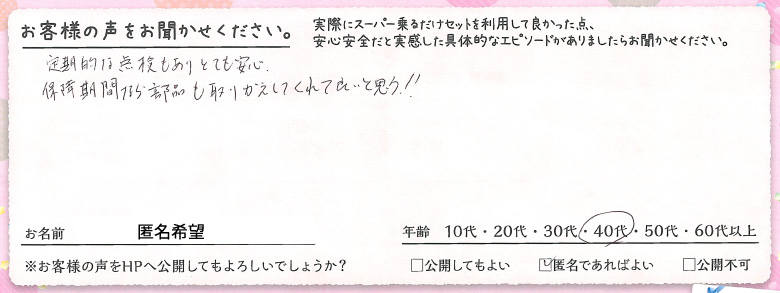 お客様の声をお聞かせください。
実際にスーパー乗るだけセットを利用して良かった点、
安心安全だと実感した具体的なエピソードがありましたらお聞かせください。
定期的な点検もありとても安心。
保障期間なら部品も取りかえしてくれて良いと思う!!
お名前 匿名希望
年齢 10代・20代・30代・40代・50代・60代以上
※お客様の声をHPへ公開してもよろしいでしょうか?
□公開してもよい ☑匿名であればよい □公開不可